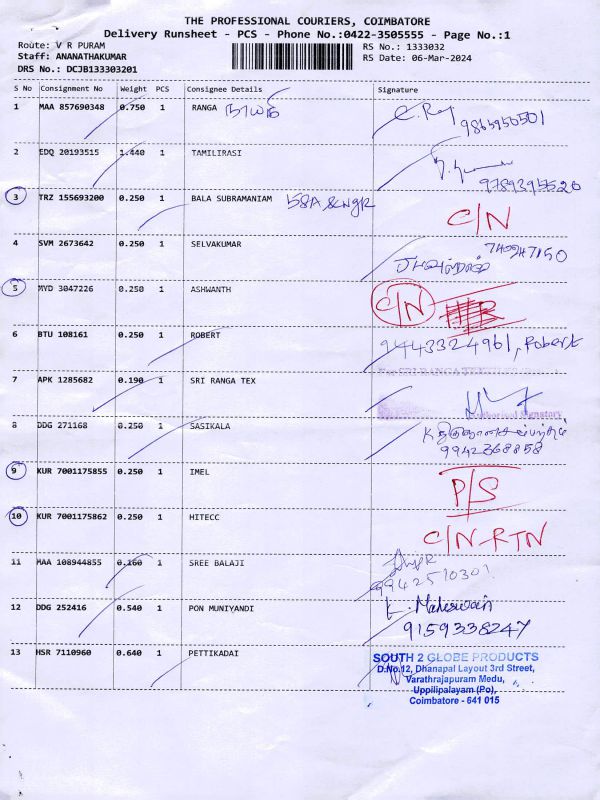 THE PROFESSIONAL COURIERS, COIMBATORE
Delivery Runsheet - PCS - Phone No.:0422-3505555 - Page No.:1
Route: V R PURAM
RS No.: 1333032
Staff: ANANATHAKUMAR
RS Date: 06-Mar-2024
DRS No.: DCJB133303201
S No Consignment No Weight PCS Consignee Details Signature
1 MAA 857690348 0.750 1 RANGA
2 EDQ 20193515 1.440 1 TAMILIRASI
9789395520
3 TRZ 155693200 0.250 1 BALA SUBRAMANIAM 58A &NGR C/N
4 SVM 2673642 0.250 1 SELVAKUMAR
5 MYD 3047226 0.250 1 ASHWANTH C/N
6 BTU 108161 0.250 1 ROBERT
9443324961, Robert
7 APK 1285682 0.190 1 SRI RANGA TEX
Authorised Signatory
8 DDG 271168 0.250 1 SASIKALA
9942368858
9 KUR 7001175855 0.250 1 IMEL P/S
10 KUR 7001175862 0.250 1 HITECC C/N-RTN
11 MAA 108944855 0.160 1 SREE BALAJI
9942510301
12 DDG 252416 0.540 1 PON MUNIYANDI
9159338247
13 HSR 7110960 0.640 1 PETTIKADAI
SOUTH 2 GLOBE PRODUCTS
D.No.12, Dhanapal Layout 3rd Street,
Varathrajapuram Medu,
Uppilipalayam (Po),
Coimbatore - 641 015